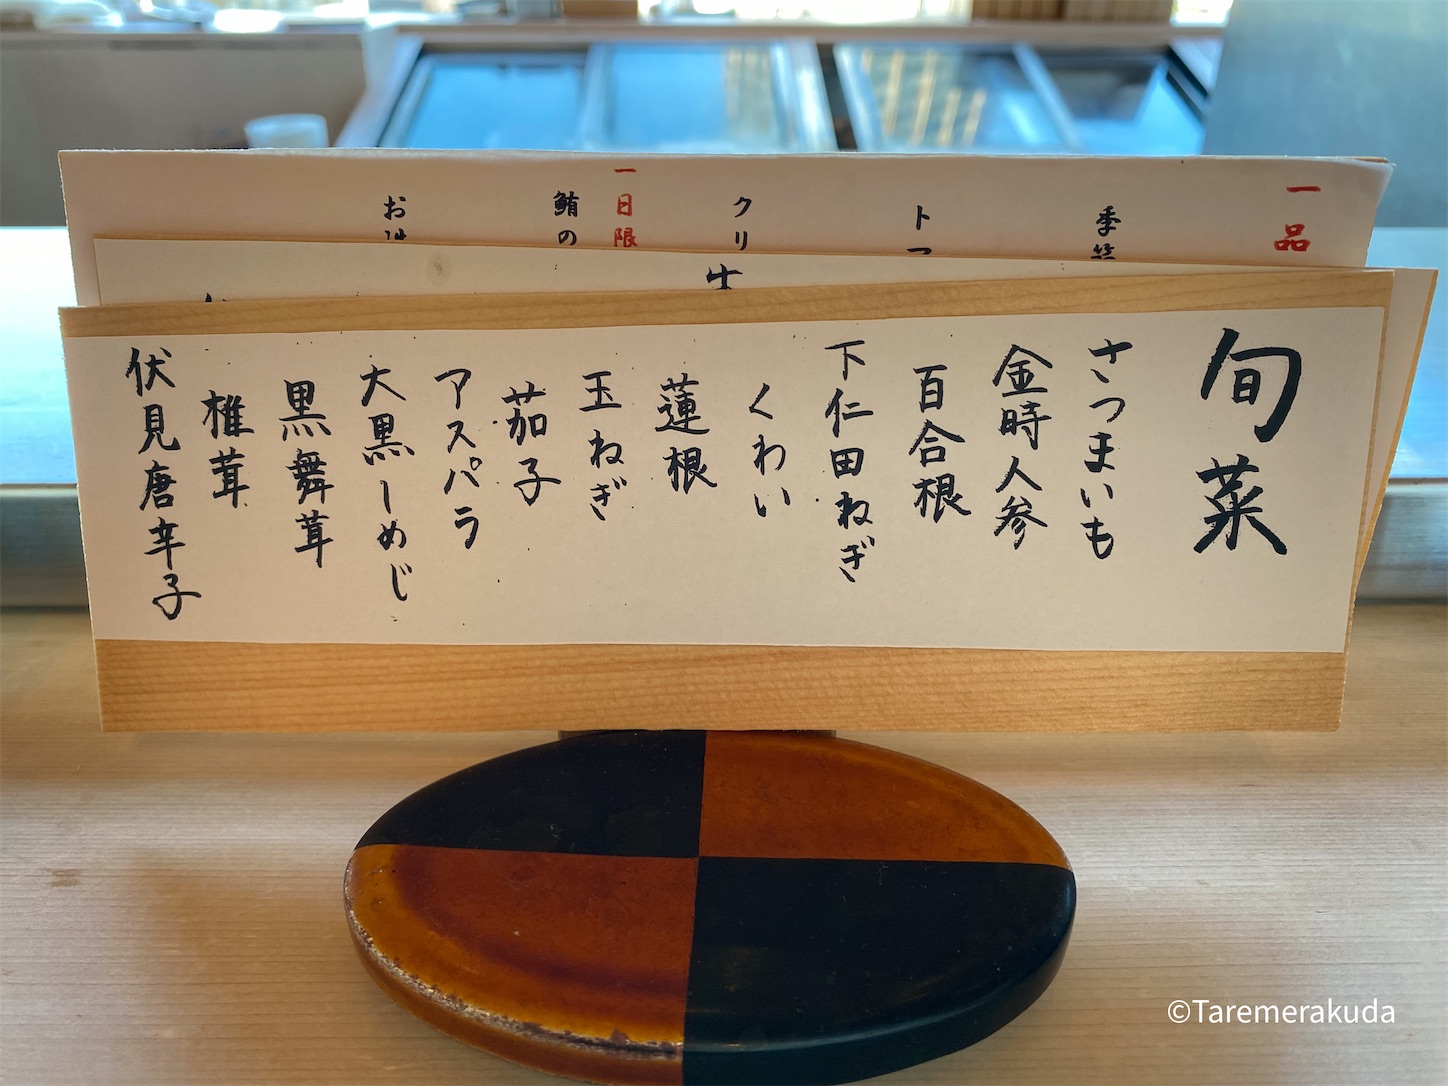 旬菜
さつまいも
金時人参
百合根
下仁田ねぎ
くわい
蓮根
玉ねぎ
茄子
アスパラ
大黒しめじ
黒舞茸
椎茸
伏見唐辛子
一品
季節
ト
クリ
一日限
鮪の
お
牛
©Taremerakuda